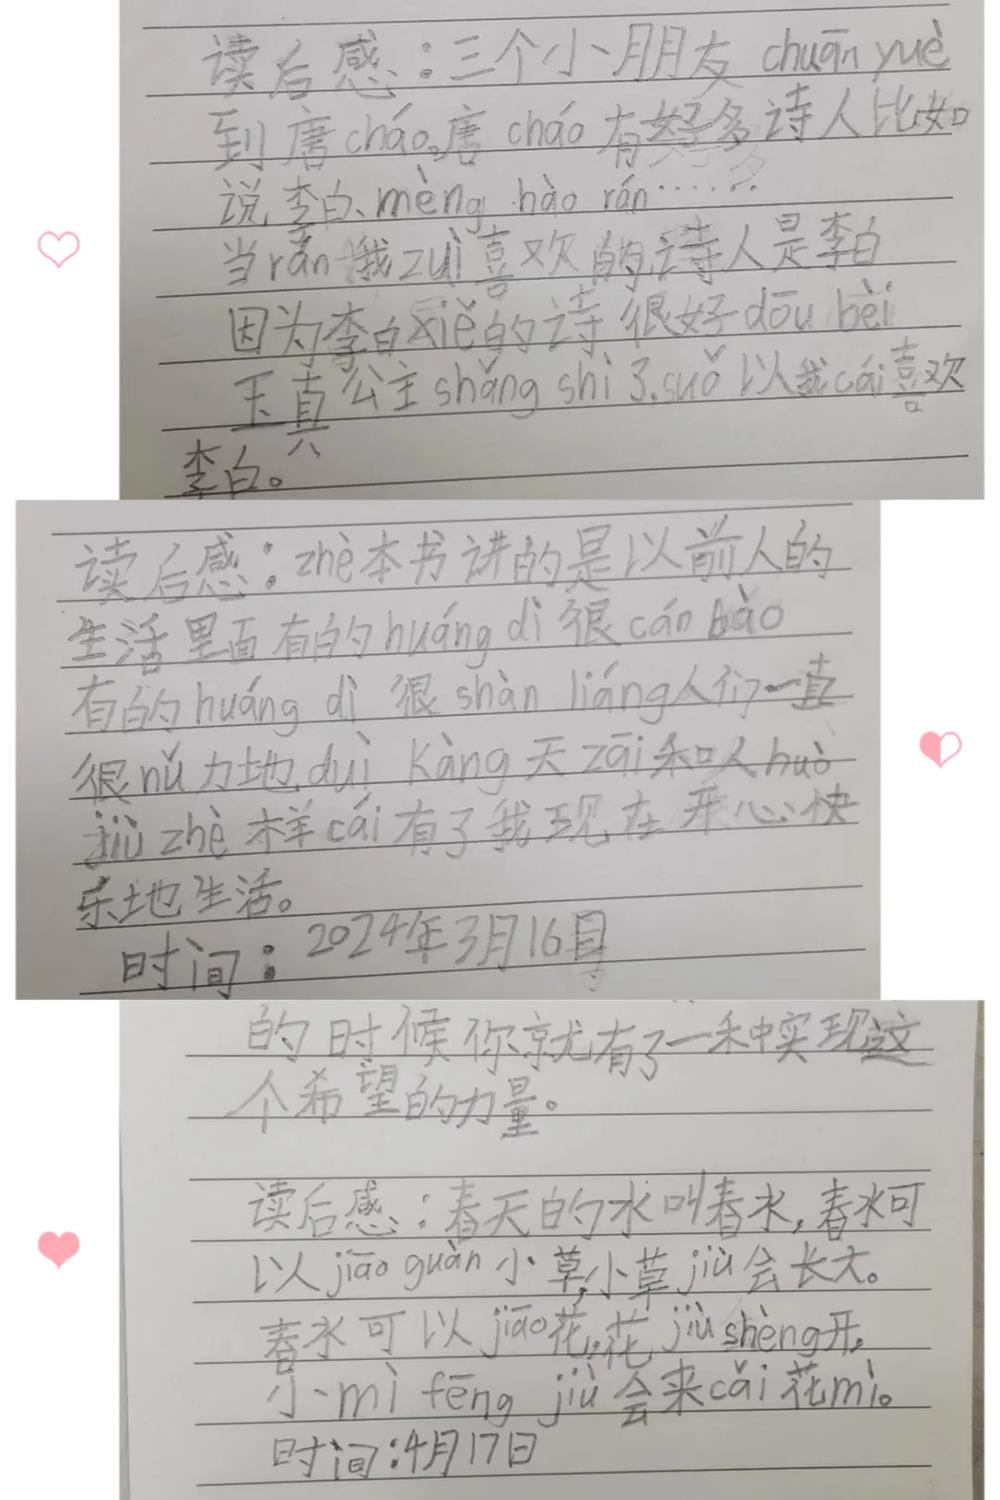 读后感：三个小朋友 chuān yuè
到唐cháo。唐cháo有好多诗人比如
说李白、mèng hào rán……
当rǎn我zuì喜欢的诗人是李白
因为李白xiě的诗很好dōu bèi
玉真公主shǎng shi 3.suǒ以我cái喜欢
李白。
读后感：zhè本书讲的是以前人的
生活里面有的huáng dì很cán bào
有的huáng dì 很 shàn liáng人们一直
很nǔ力地duì Kàng天zāi和人huò
jiù zhè样cái有了我现在开心快
乐地生活。
时间：2024年3月16号
的时候你就有了一种实现这
个希望的力量。
读后感：春天的水叫春水，春水可
以jiāo guàn小草，小草jiù会长大。
春水可以jiāo花，花jiù shèng开，
小mì fēng jiù会来cǎi花mì。
时间：4月17日